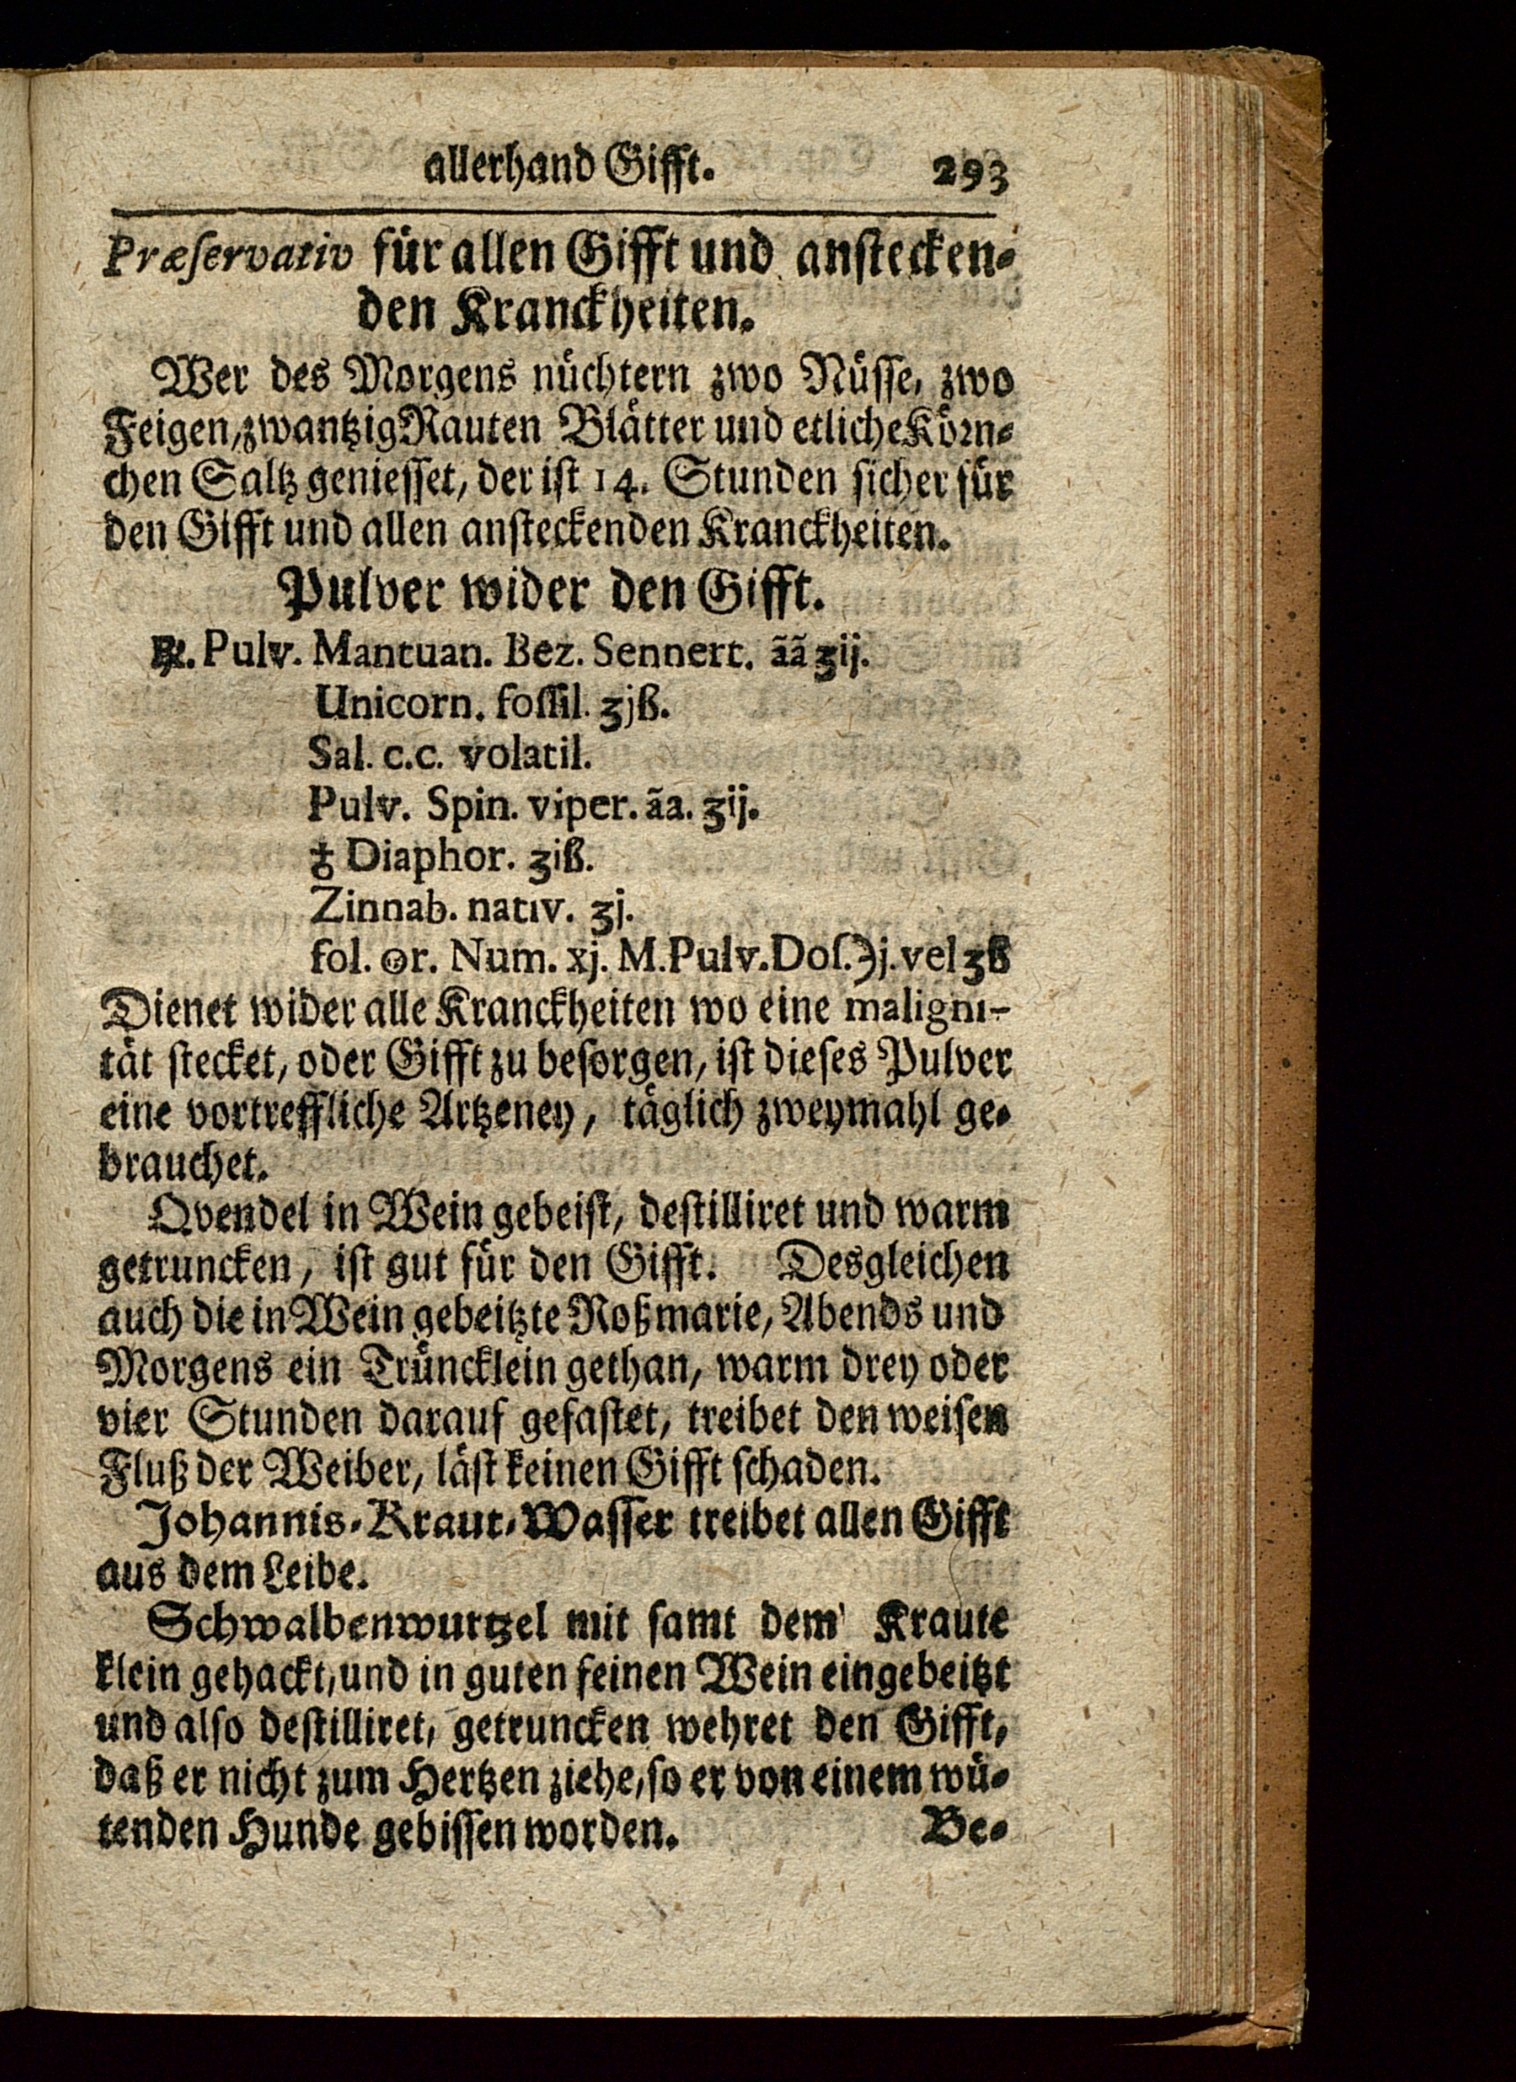 allerhand Gifft. 293
Præſervativ für allen Gifft und anſtecken⸗
den Kranckheiten.
Wer des Morgens nüchtern zwo Nüſſe, zwo
Feigen, zwantzig Rauten Blätter und etliche Körn⸗
chen Saltz genieſſet, der iſt 14. Stunden ſicher für
den Gifft und allen anſteckenden Kranckheiten.
Pulver wider den Gifft.
℞. Pulv. Mantuan. Bez. Sennert. ãã ʒij.
Unicorn. foſſil. ʒjß.
Sal. c.c. volatil.
Pulv. Spin. viper. ãa. ʒij.
♁ Diaphor. ʒiß.
Zinnab. nativ. ʒj.
fol. ☉r. Num. xj. M. Pulv. Doſ. ℈j. vel ʒß
Dienet wider alle Kranckheiten wo eine maligni-
tät ſtecket, oder Gifft zu beſorgen, iſt dieſes Pulver
eine vortreffliche Artzeney, täglich zweymahl ge⸗
brauchet.
Qvendel in Wein gebeiſt, deſtilliret und warm
getruncken, iſt gut für den Gifft. Desgleichen
auch die in Wein gebeitzte Roßmarie, Abends und
Morgens ein Trüncklein gethan, warm drey oder
vier Stunden darauf gefaſtet, treibet den weiſen
Fluß der Weiber, läſt keinen Gifft ſchaden.
Johannis⸗Kraut⸗Waſſer treibet allen Gifft
aus dem Leibe.
Schwalbenwurtzel mit ſamt dem Kraute
klein gehackt, und in guten feinen Wein eingebeitzt
und alſo deſtilliret, getruncken wehret den Gifft,
daß er nicht zum Hertzen ziehe, ſo er von einem wü⸗
tenden Hunde gebiſſen worden. Be⸗